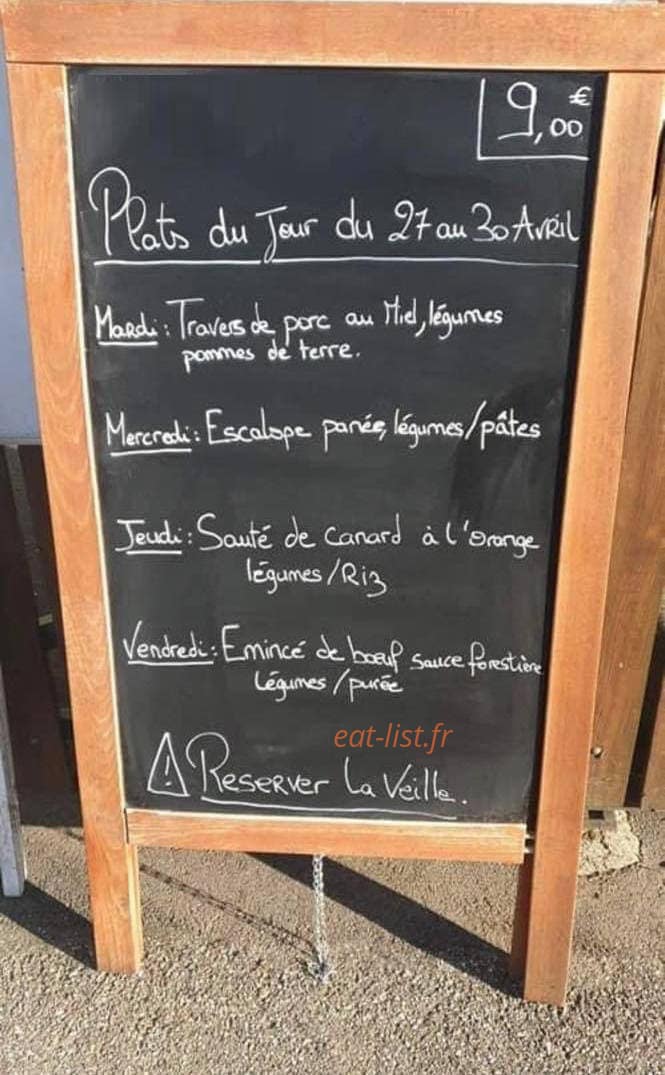 9,00 €
Plats du Jour du 27 au 30 Avril
Mardi : Travers de porc au Miel, légumes
pommes de terre.
Mercredi : Escalope panée, légumes/pâtes
Jeudi : Sauté de Canard à l'Orange
légumes/Riz
Vendredi : Emincé de bœuf sauce forestière
Légumes/purée
eat-list.fr
⚠ Reserver La Veille.